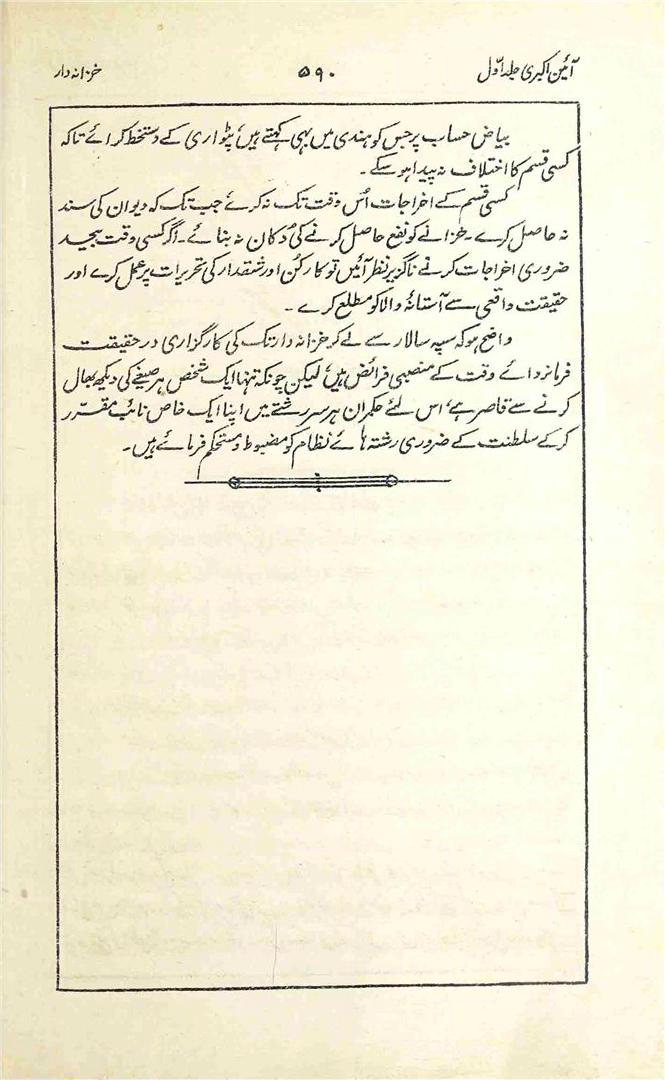 آئین اکبری جلد اوّل ۵۹۰ خزانہ دار
بیاض حساب پر جس کو ہندی میں بہی کہتے ہیں، پٹواری کے دستخط کرائے تاکہ
کسی قسم کا اختلاف نہ پیدا ہو سکے۔
کسی قسم کے اخراجات اُس وقت تک نہ کرے جب تک کہ دیوان کی سند
نہ حاصل کرے۔ خزانے کو نفع حاصل کرنے کی دُکان نہ بنائے۔ اگر کسی وقت بیحد
ضروری اخراجات کرنے ناگزیر نظر آئیں تو کارکُن اور شقدار کی تحریرات پر عمل کرے اور
حقیقت واقعی سے آستانۂ والا کو مطلع کرے۔
واضح ہو کہ سپہ سالار سے لے کر خزانہ دار تک کی کارگزاری در حقیقت
فرمانروائے وقت کے منصبی فرائض ہیں، لیکن چونکہ تنہا ایک شخص ہر صیغے کی دیکھ بھال
کرنے سے قاصر ہے، اس لئے حکمران ہر سررشتے میں اپنا ایک خاص نائب مقرّر
کر کے سلطنت کے ضروری رشتہ ہائے نظام کو مضبوط و مستحکم فرمائے ہیں۔